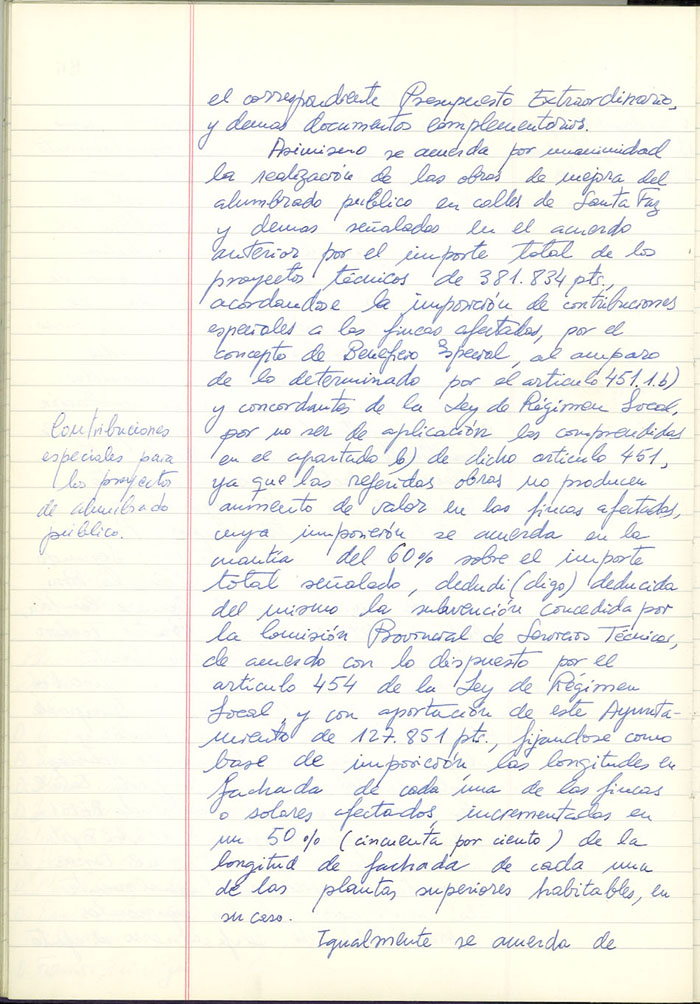 el correspondiente Presupuesto Extraordinario,
y demas documentos complementarios.
Asimismo se acuerda por unanimidad
la realización de las obras de mejora del
alumbrado publico en calles de Santa Faz
y demas señaladas en el acuerdo
anterior por el importe total de los
proyectos técnicos de 381.834 pts,
acordandose la imposición de contribuciones
especiales a las fincas afectadas, por el
concepto de Beneficio Especial, al amparo
de lo determinado por el articulo 451.1.b)
y concordantes de la Ley de Régimen Local,
por no ser de aplicación las comprendidas
en el apartado b) de dicho articulo 451,
ya que las referidas obras no producen
aumento de valor en las fincas afectadas,
cuya imposición se acuerda en la
cuantia del 60% sobre el importe
total señalado, dedudi (digo) deducida
del mismo la subvención concedida por
la Comisión Provincial de Servicios Técnicos,
de acuerdo con lo dispuesto por el
artículo 454 de la Ley de Régimen
Local, y con aportación de este Ayunta-
miento de 127.851 pts., fijandose como
base de imposición las longitudes en
fachada de cada una de las fincas
o solares afectados, incrementadas en
un 50% (cincuenta por ciento) de la
longitud de fachada de cada una
de las plantas superiores habitables, en
su caso.
Igualmente se acuerda de
Contribuciones
especiales para
los proyectos
de alumbrado
público.